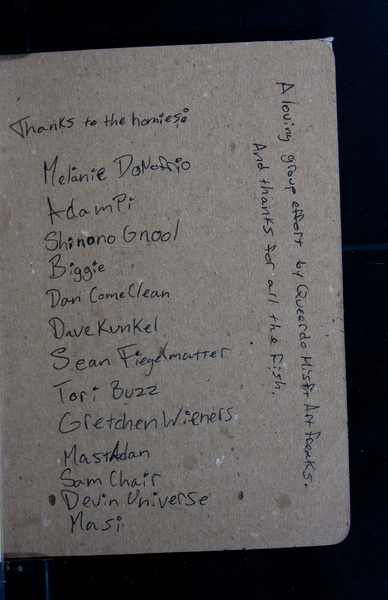 Thanks to the homies:
Melanie DoNoffrio
Adam Pi
Shinano Gnool
Biggie
Dan ComeClean
Dave Kunkel
Sean Fiegelmatter
Tori Buzz
Gretchen Wieners
MastAdan
Sam Chair
Devin Universe
Masi
A loving group effort by Queerdo Misfit Art Freaks.
And thanks for all the fish.